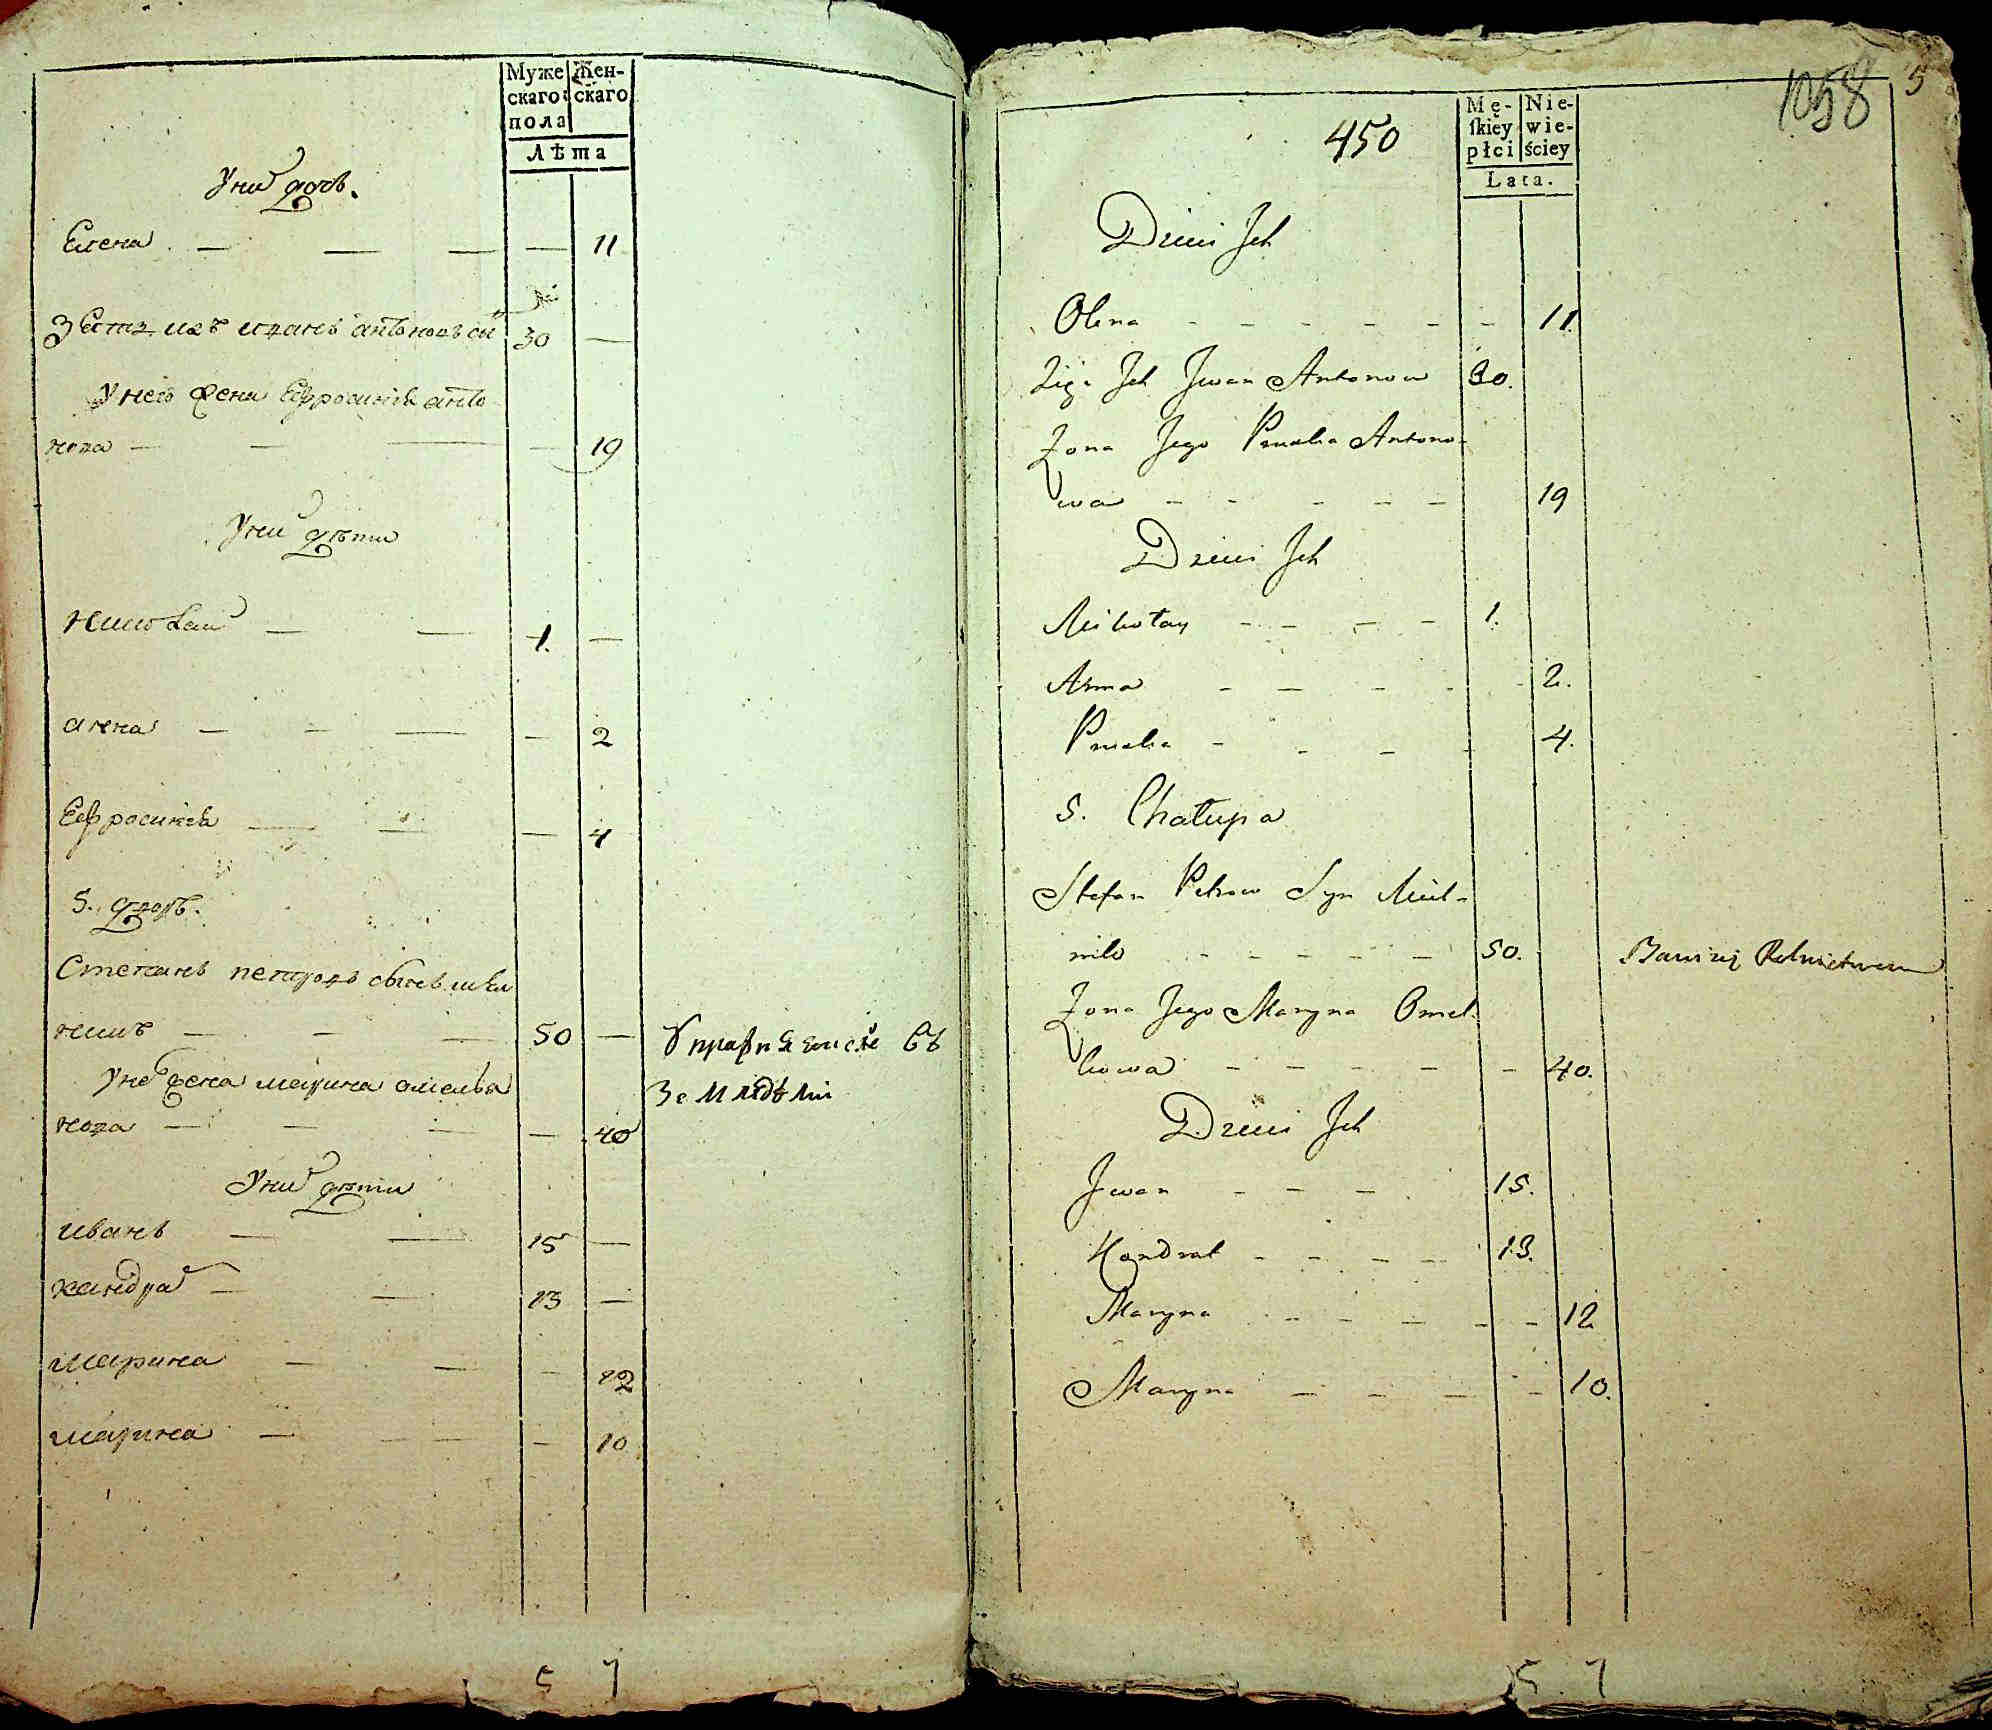 Муже
скаго
пола
Жен-
скаго
Лѣта
У них дочь.
Елена — — — — 11
Зять их иванъ антоновъ сн 30 —
У него жена Ефросинія анто
нова — — — — 19
У них дѣти
николаи — — 1. —
анна — — — — 2
Ефросинія — — — 4
5. дворъ.
Степанъ петровъ сынъ мел
никъ — — — 50 — Упражняется въ
Земледѣліи
У нег жена марина омелья
нова — — — — 40
У них дѣти
иванъ — — 15 —
кандра — — 13 —
марина — — — 12
марина — — — — 10
5 7
1058
5
450
Mę-
skiey
płci
Nie-
wie-
ściey
Lata.
Dzieci Ich
Olena - - - - - - 11.
Zięć Ich Iwan Antonow 30.
Żona Jego Antono-
wa - - - - - 19
Dzieci Ich
Mikołay - - - - 1.
Anna - - - - - 2.
- - - - 4.
5. Chałupa
Stefan Petrow Syn Miel-
nik - - - - - 50. Bawi się Rolnictwem
Żona Jego Maryna Omel-
kowa - - - - - 40.
Dzieci Ich
Iwan - - - 15.
Kondrat - - - - 13.
Maryna - - - - - - 12
Maryna - - - - 10.
5 7